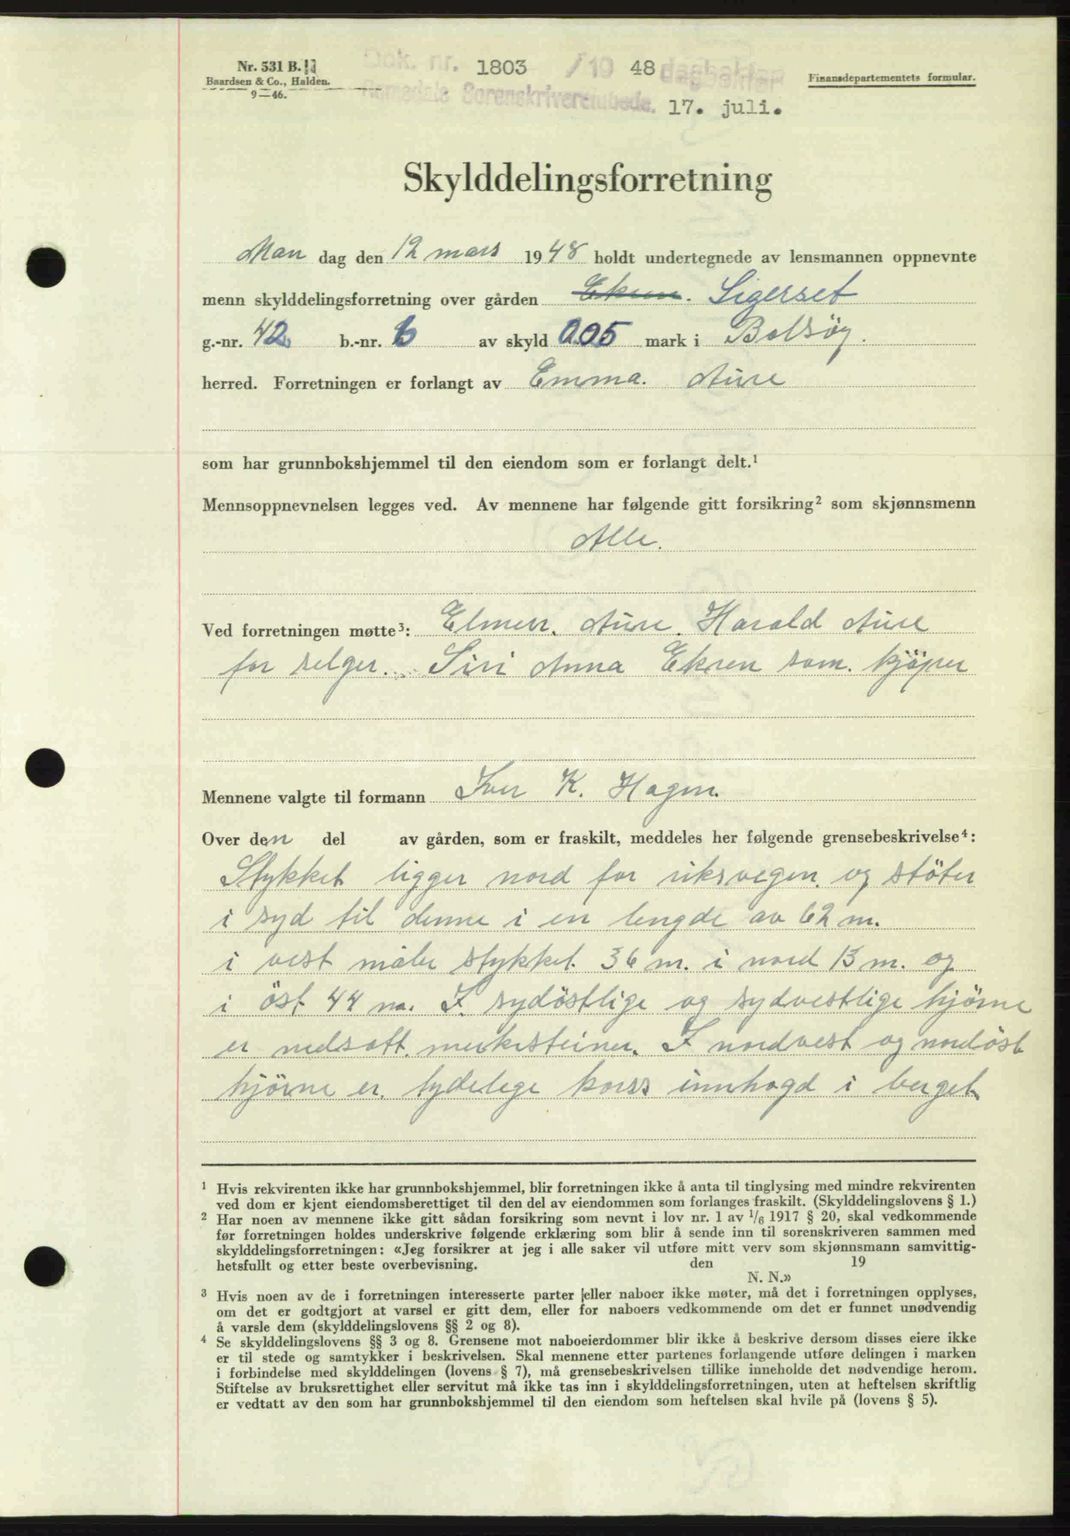 Nr. 531 B.
Baardsen & Co., Halden.
9—46.
Dok. nr. 1803 /19 48 dagboken
Romsdals Sorenskriverembede. 17. juli.
Finansdepartementets formular.
Skylddelingsforretning
Man dag den 12 mars 1948 holdt undertegnede av lensmannen oppnevnte
menn skylddelingsforretning over gården Ekren. Sigerset
g.-nr. 42 b.-nr. 6 av skyld 0.05 mark i Bolsøy.
herred. Forretningen er forlangt av Emma. Aure
som har grunnbokshjemmel til den eiendom som er forlangt delt.¹
Mennsoppnevnelsen legges ved. Av mennene har følgende gitt forsikring² som skjønnsmenn
Alle.
Ved forretningen møtte³: Elmer. Aure. Harald Aure
for selger. Siri Anna Ekren som. kjöper
Mennene valgte til formann Iver K. Hagen.
Over den del av gården, som er fraskilt, meddeles her følgende grensebeskrivelse⁴:
Stykket ligger nord for riksvegen. og stöter
i syd til denne i en lengde av 62 m.
i vest måler stykket. 36 m. i nord 13 m. og
i öst. 44 m. I. sydöstlige og sydvestlige hjörne
er nedsatt. merkesteiner. I nordvest og nordöst
hjörne er. tydelege kors innhogd i berget.
¹ Hvis rekvirenten ikke har grunnbokshjemmel, blir forretningen ikke å anta til tinglysing med mindre rekvirenten
ved dom er kjent eiendomsberettiget til den del av eiendommen som forlanges fraskilt. (Skylddelingslovens § 1.)
² Har noen av mennene ikke gitt sådan forsikring som nevnt i lov nr. 1 av ¹/₆ 1917 § 20, skal vedkommende
før forretningen holdes underskrive følgende erklæring som blir å sende inn til sorenskriveren sammen med
skylddelingsforretningen: «Jeg forsikrer at jeg i alle saker vil utføre mitt verv som skjønnsmann samvittig-
hetsfullt og etter beste overbevisning. den 19
N. N.»
³ Hvis noen av de i forretningen interesserte parter eller naboer ikke møter, må det i forretningen opplyses,
om det er godtgjort at varsel er gitt dem, eller for naboers vedkommende om det er funnet unødvendig
å varsle dem (skylddelingslovens §§ 2 og 8).
⁴ Se skylddelingslovens §§ 3 og 8. Grensene mot naboeierdommer blir ikke å beskrive dersom disses eiere ikke
er til stede og samtykker i beskrivelsen. Skal mennene etter partenes forlangende utføre delingen i marken
i forbindelse med skylddelingen (lovens § 7), må grensebeskrivelsen tillike inneholde det nødvendige herom.
Stiftelse av bruksrettighet eller servitut må ikke tas inn i skylddelingsforretningen, uten at heftelsen skriftlig
er vedtatt av den som har grunnbokshjemmel til den eiendom som heftelsen skal hvile på (lovens § 5).